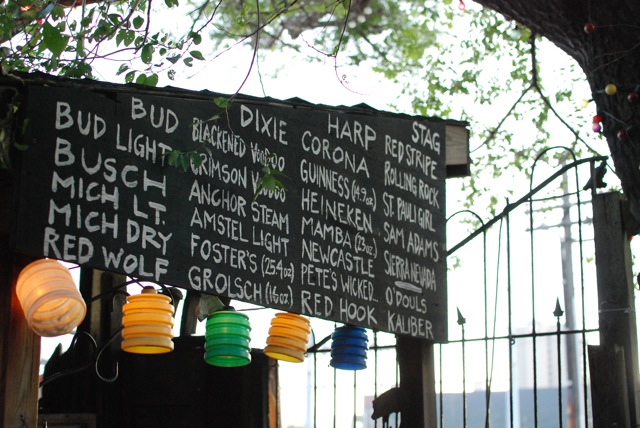 BUD
BUD LIGHT
BUSCH
MICH LT.
MICH DRY
RED WOLF
DIXIE
BLACKENED VOODOO
CRIMSON VOODOO
ANCHOR STEAM
AMSTEL LIGHT
FOSTER'S (25.4oz)
GROLSCH (16oz)
HARP
CORONA
GUINNESS (14.9oz)
HEINEKEN
MAMBA (23oz)
NEWCASTLE
PETE'S WICKED...
RED HOOK
STAG
RED STRIPE
ROLLING ROCK
ST. PAULI GIRL
SAM ADAMS
SIERRA NEVADA
O'DOULS
KALIBER